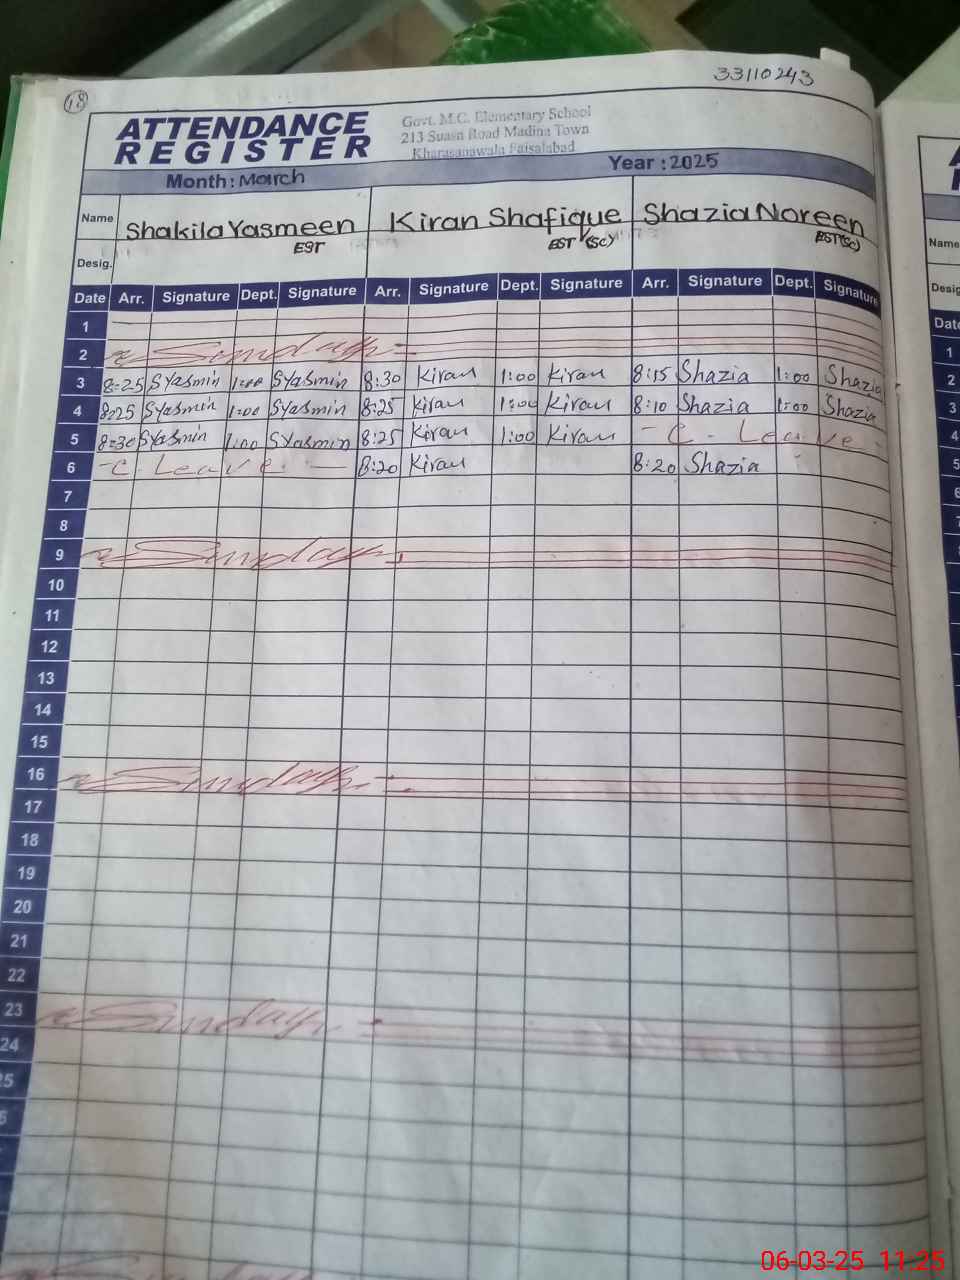 33110243
18
ATTENDANCE
REGISTER
Govt. M.C. Elementary School
213 Susan Road Madina Town
Kharasanawala Faisalabad
Month: March Year: 2025
Name Shakila Yasmeen Kiran Shafique Shazia Noreen
Desig. EST EST (SC) EST (SC)
Date Arr. Signature Dept. Signature Arr. Signature Dept. Signature Arr. Signature Dept. Signature
1
2 Sunday
3 8:25 SYasmin 1:00 SYasmin 8:30 Kiran 1:00 Kiran 8:15 Shazia 1:00 Shazia
4 8:25 SYasmin 1:00 SYasmin 8:25 Kiran 1:00 Kiran 8:10 Shazia 1:00 Shazia
5 8:30 SYasmin 1:00 SYasmin 8:25 Kiran 1:00 Kiran - C. Leave -
6 - C. Leave. - 8:20 Kiran 8:20 Shazia
7
8
9 Sunday
10
11
12
13
14
15
16 Sunday
17
18
19
20
21
22
23 Sunday
24
Name
Desig
Date
1
2
3
4
5
6
06-03-25 11:25